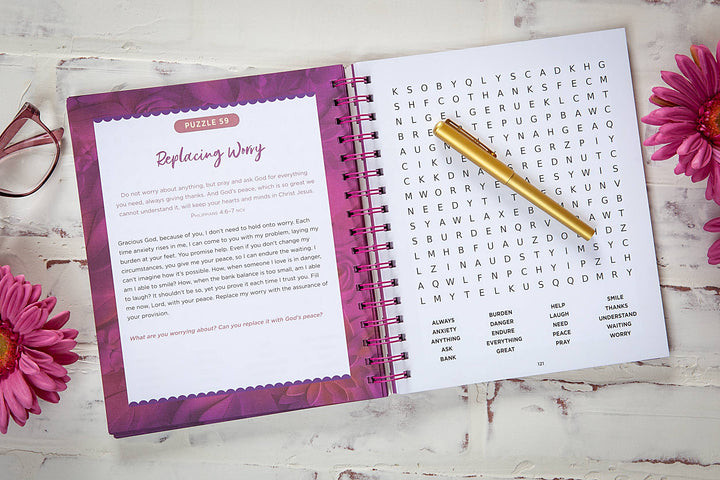 PUZZLE 59
Replacing Worry
Do not worry about anything, but pray and ask God for everything
you need, always giving thanks. And God's peace, which is so great we
cannot understand it, will keep your hearts and minds in Christ Jesus.
PHILIPPIANS 4:6–7 NCV
Gracious God, because of you, I don't need to hold onto worry. Each
time anxiety rises in me, I can come to you with my problem, laying my
burden at your feet. You promise help. Even if you don't change my
circumstances, you give me your peace, so I can endure the waiting. I
can't imagine how it's possible. How, when someone I love is in danger,
am I able to smile? How, when the bank balance is too small, am I able
to laugh? It shouldn't be so, yet you prove it each time I trust you. Fill
me now, Lord, with your peace. Replace my worry with the assurance of
your provision.
What are you worrying about? Can you replace it with God's peace?
K S O B Y Q L Y S C A D K H G
S H F C O T H A N K S F E C M
N L G E L G E R U E K L C M T
B R E E P U G P B A W C
A U G T Y N A H G E A Q
C I K A E G R Z P I Y
C K K D N R E D N U T C
M W O R R Y E S Y W I S
N E E D Y T G K U N V
S Y A W L A X E B N A F G B
S B U R D E N Q R A W T
L M H B F U A U Z D O D Z
L Z I N A U D S T Y M S Y C
A Q W L F N P C H Y I P Z L H
L M Y T E L K U S Q Q D M R Y
ALWAYS BURDEN HELP SMILE
ANXIETY DANGER LAUGH THANKS
ANYTHING ENDURE NEED UNDERSTAND
ASK EVERYTHING PEACE WAITING
BANK GREAT PRAY WORRY
121